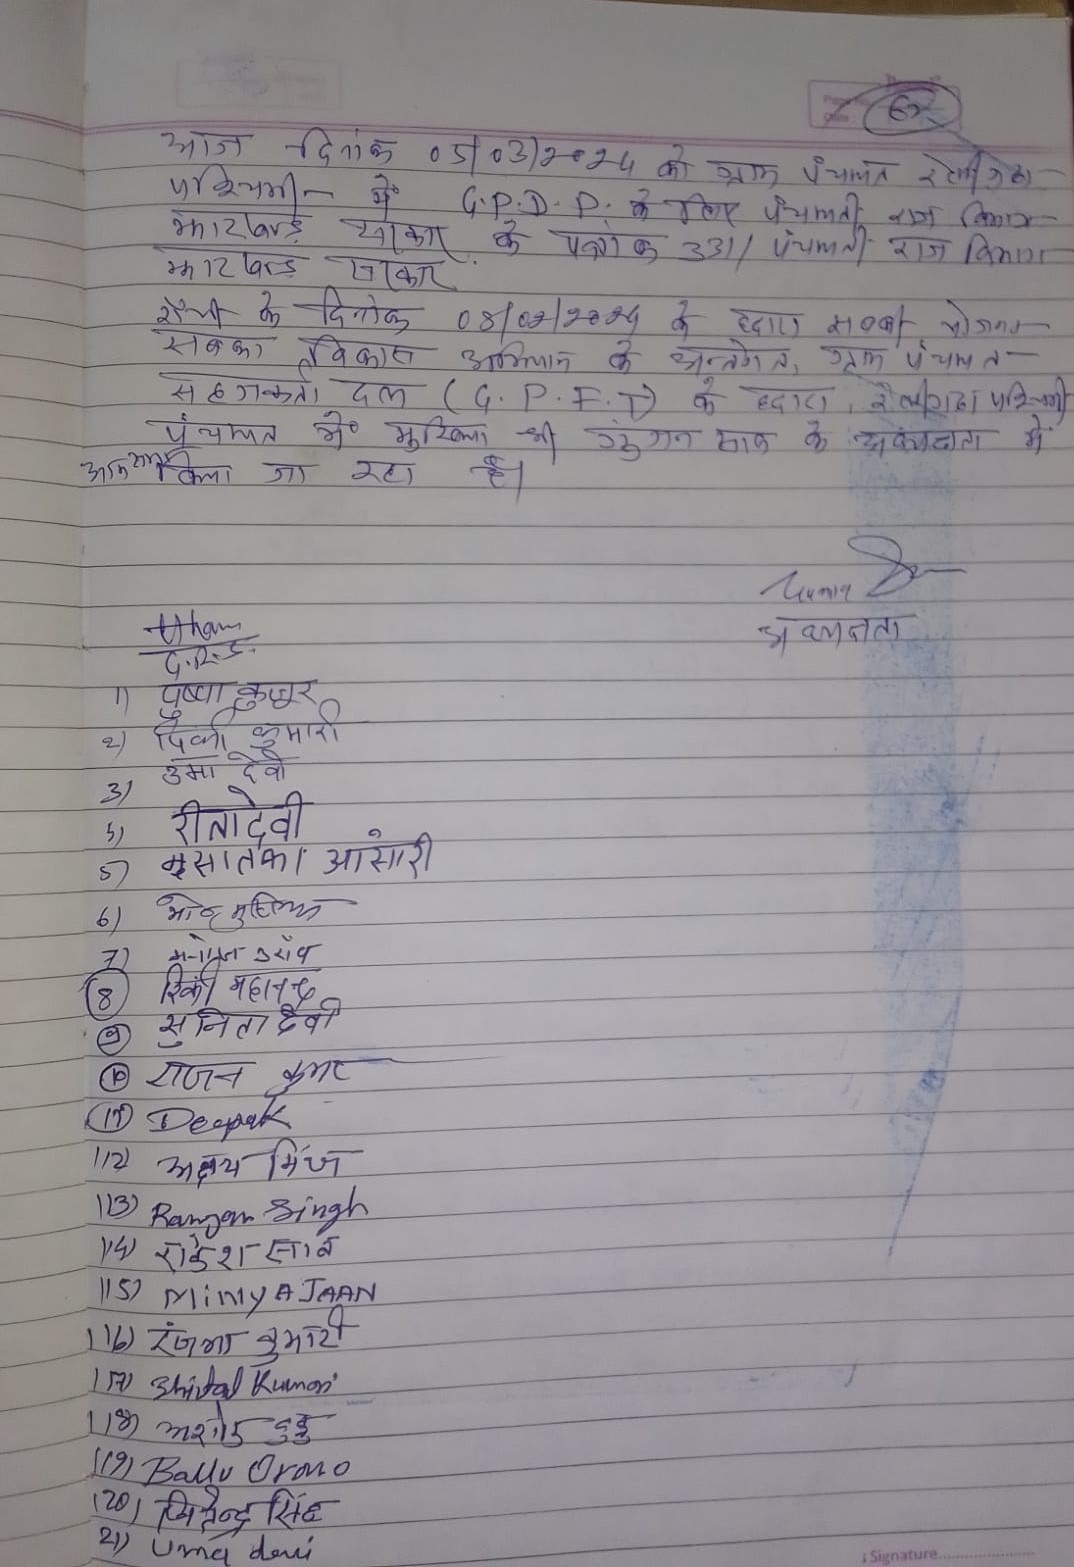 62
आज दिनांक 05/03/2024 को ग्राम पंचायत रेलीगढ़ा
पश्चिमी में G.P.D.P. के लिए पंचायती राज विभाग
झारखण्ड सरकार के पत्रांक 331/ पंचायती राज विभाग
झारखण्ड सरकार
राँची के दिनांक 08/02/2024 के द्वारा सबकी योजना
सबका विकास अभियान के अन्तर्गत, ग्राम पंचायत
सहजकर्ता दल (G. P. F. T) के द्वारा, रेलीगढ़ा पश्चिमी
पंचायत में मुखिया श्री साव के अध्यक्षता में
किया जा रहा है।
Kumar
अध्यक्षता
G.R.S.
1) पुष्पा कुजूर
2) पिंकी कुमारी
3) उमा देवी
4) रीता देवी
5) आंसारी
6)
7) मनोज उराँव
8 रिंकी महानन्द
9 सुनिता देवी
10 राजन कुमार
11) Deepak
12) अक्षय मिंज
13) Ranjan Singh
14) राकेश साव
15) MiNyA JAAN
16) रंजना कुमारी
17) Shital Kumari
18) अशोक टुडु
19) Ballu Orano
20) जितेन्द्र सिंह
21) Uma devi
Signature